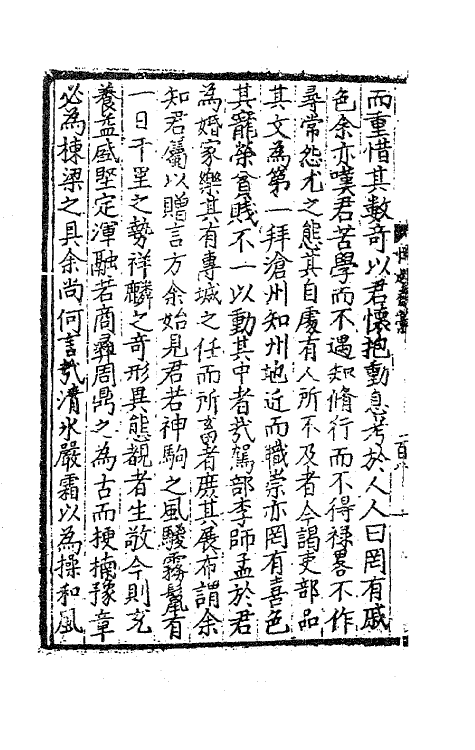 而重惜其數奇以君懷抱動息考於人人曰罔有戚
色余亦嘆君苦學而不遇知脩行而不得祿畧不作
尋常怨尤之態其自處有人所不及者今謁吏部品
其文為第一拜滄州知州地近而職崇亦罔有喜色
其寵榮貧賤不一以動其中者哉駕部李師孟於君
為婚家樂其有專城之任而所畜者庶其展布謂余
知君屬以贈言方余始見君若神駒之風騣霧鬣有
一日千里之勢祥麟之奇形異態覩者生敬今則充
養益盛堅定渾融若商彝周鼎之為古而楩楠豫章
必為棟梁之具余尚何言哉清氷嚴霜以為操和風